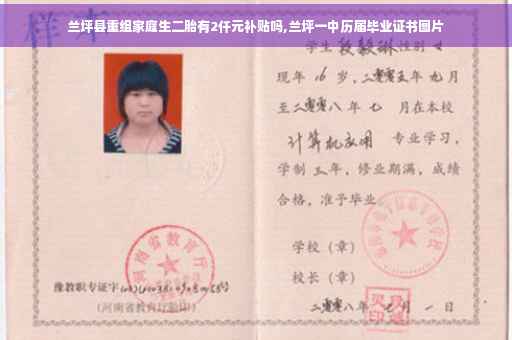 兰坪县重组家庭生二胎有2仟元补贴吗,兰坪一中历届毕业证书图片
样本
学生段毅琳性别女
现年16岁,二零零五年九月
至二零零八年七月在本校
计算机应用 专业学习,
学制三年,修业期满,成绩
合格,准予毕业
学校(章)
校长(章)
二零零八年 月一日
河南省教育厅
豫教职专证字
(河南省教育厅验印)